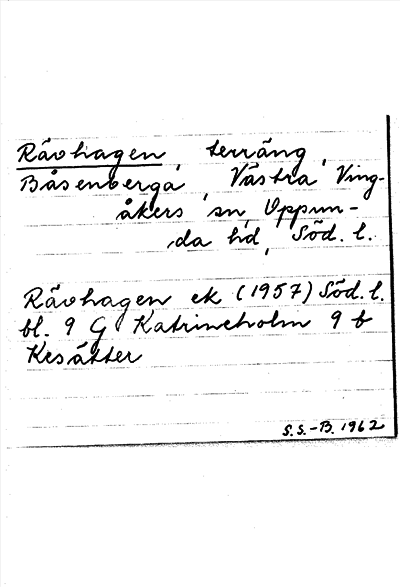 Rävhagen, terräng,
Båsenberga, Västra Ving-
åkers sn, Oppun-
da hd, Söd. l.
Rävhagen ek (1957) Söd. l.
bl. 9 G Katrineholm 9 b
Kesätter
S.S.-B. 1962